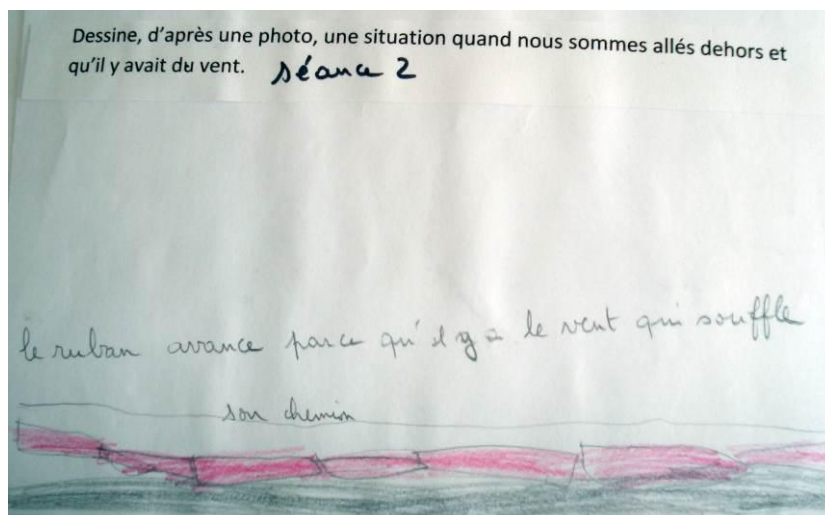 Dessine, d'après une photo, une situation quand nous sommes allés dehors et
qu'il y avait du vent. séance 2
le ruban avance parce qu'il y a le vent qui souffle
son chemin